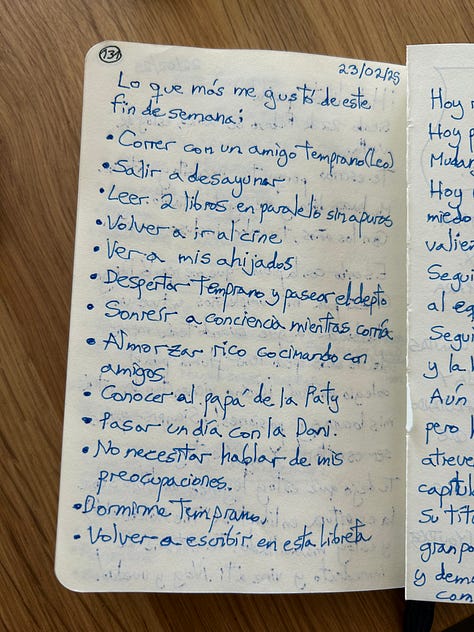 131
23/02/25
Lo que más me gustó de este
fin de semana:
• Correr con un amigo temprano (Leo)
• Salir a desayunar
• Leer 2 libros en paralelo sin apuros
• Volver a ir al cine
• Ver a mis ahijados
• Despertar temprano y pasear el depto
• Sonreír a conciencia mientras corría
• Almorzar rico cocinando con
amigos.
• Conocer al papá de la Paty
• Pasar un día con la Dani.
• No necesitar hablar de mis
preocupaciones.
• Dormirme Temprano.
• Volver a escribir en esta libreta
Hoy
Hoy
Hoy
miedo
Segui
al
Segu
y la
Aún
pero
atreve
capítul
Su tít
gran po
y dem
com